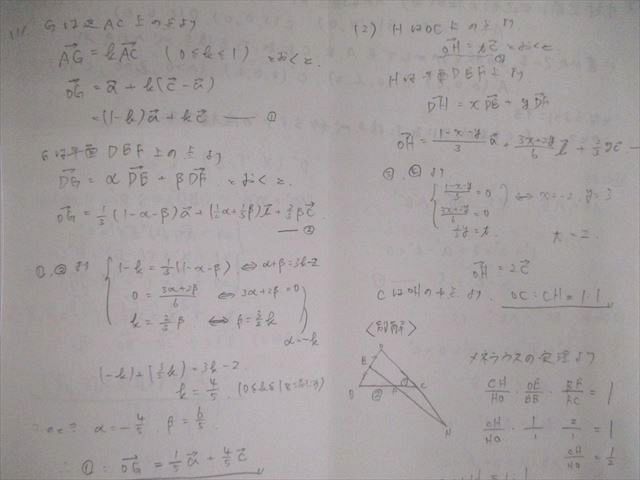 (1) Gは辺AC上の点より
AG→ = kAC→ (0≦k≦1) とおくと、
OG→ = a→ + k(c→ - a→)
= (1-k)a→ + kc→ ―― ①
Gは平面DEF上の点より
DG→ = αDE→ + βDF→ とおくと、
OG→ = 1/3(1-α-β)a→ + (1/2α+1/3β)b→ + 2/3βc→
―― ②
①, ②より
1-k = 1/3(1-α-β) ⇔ α+β=3k-2
0 = (3α+2β)/6 ⇔ 3α+2β=0
k = 2/3β ⇔ β=3/2k
α=-k
(-k)+(3/2k) = 3k-2
k = 4/5
α = -4/5, β = 6/5
∴ ①: OG→ = 1/5a→ + 4/5c→
(2) HはOC上の点より
OH→ = tc→ とおくと
Hは平面DEF上より
DH→ = xDE→ + yDF→
OH→ = (1-x-y)/3 a→ + (3x+2y)/6 b→ + 2/3yc→
(1-x-y)/3 = 0 ⇔ x=-2, y=3
(3x+2y)/6 = 0
2/3y = t, t = 2
OH→ = 2c→
CはOHの中点より OC:CH = 1:1
〈別解〉
メネラウスの定理より
CH/HO · OE/EB · BF/FC = 1
CH/HO · 1/1 · 2/1 = 1
CH/HO = 1/2